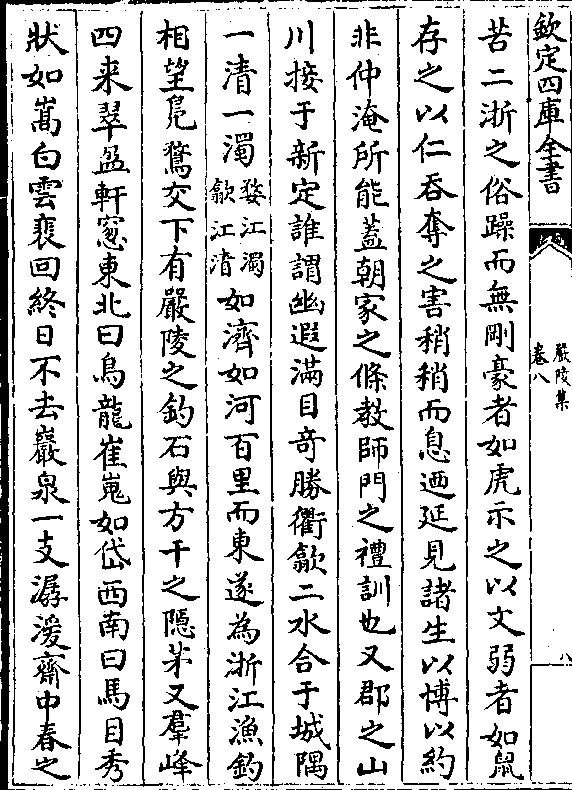 欽定四庫全書
嚴陵集
卷八
八
苦二浙之俗躁而無剛豪者如虎示之以文弱者如鼠
存之以仁吞奪之害稍稍而息迺延見諸生以博以約
非仲淹所能蓋朝家之條教師門之禮訓也又郡之山
川接于新定誰謂幽遐滿目竒勝衢歙二水合于城隅
一清一濁婺江濁歙江清如濟如河百里而東遂為浙江漁釣
相望鳬鶩交下有嚴陵之釣石與方干之隱茅又羣峰
四来翠盈軒窻東北曰烏龍崔嵬如岱西南曰馬目秀
狀如嵩白雲裵回終日不去巖泉一支潺湲齋中春之